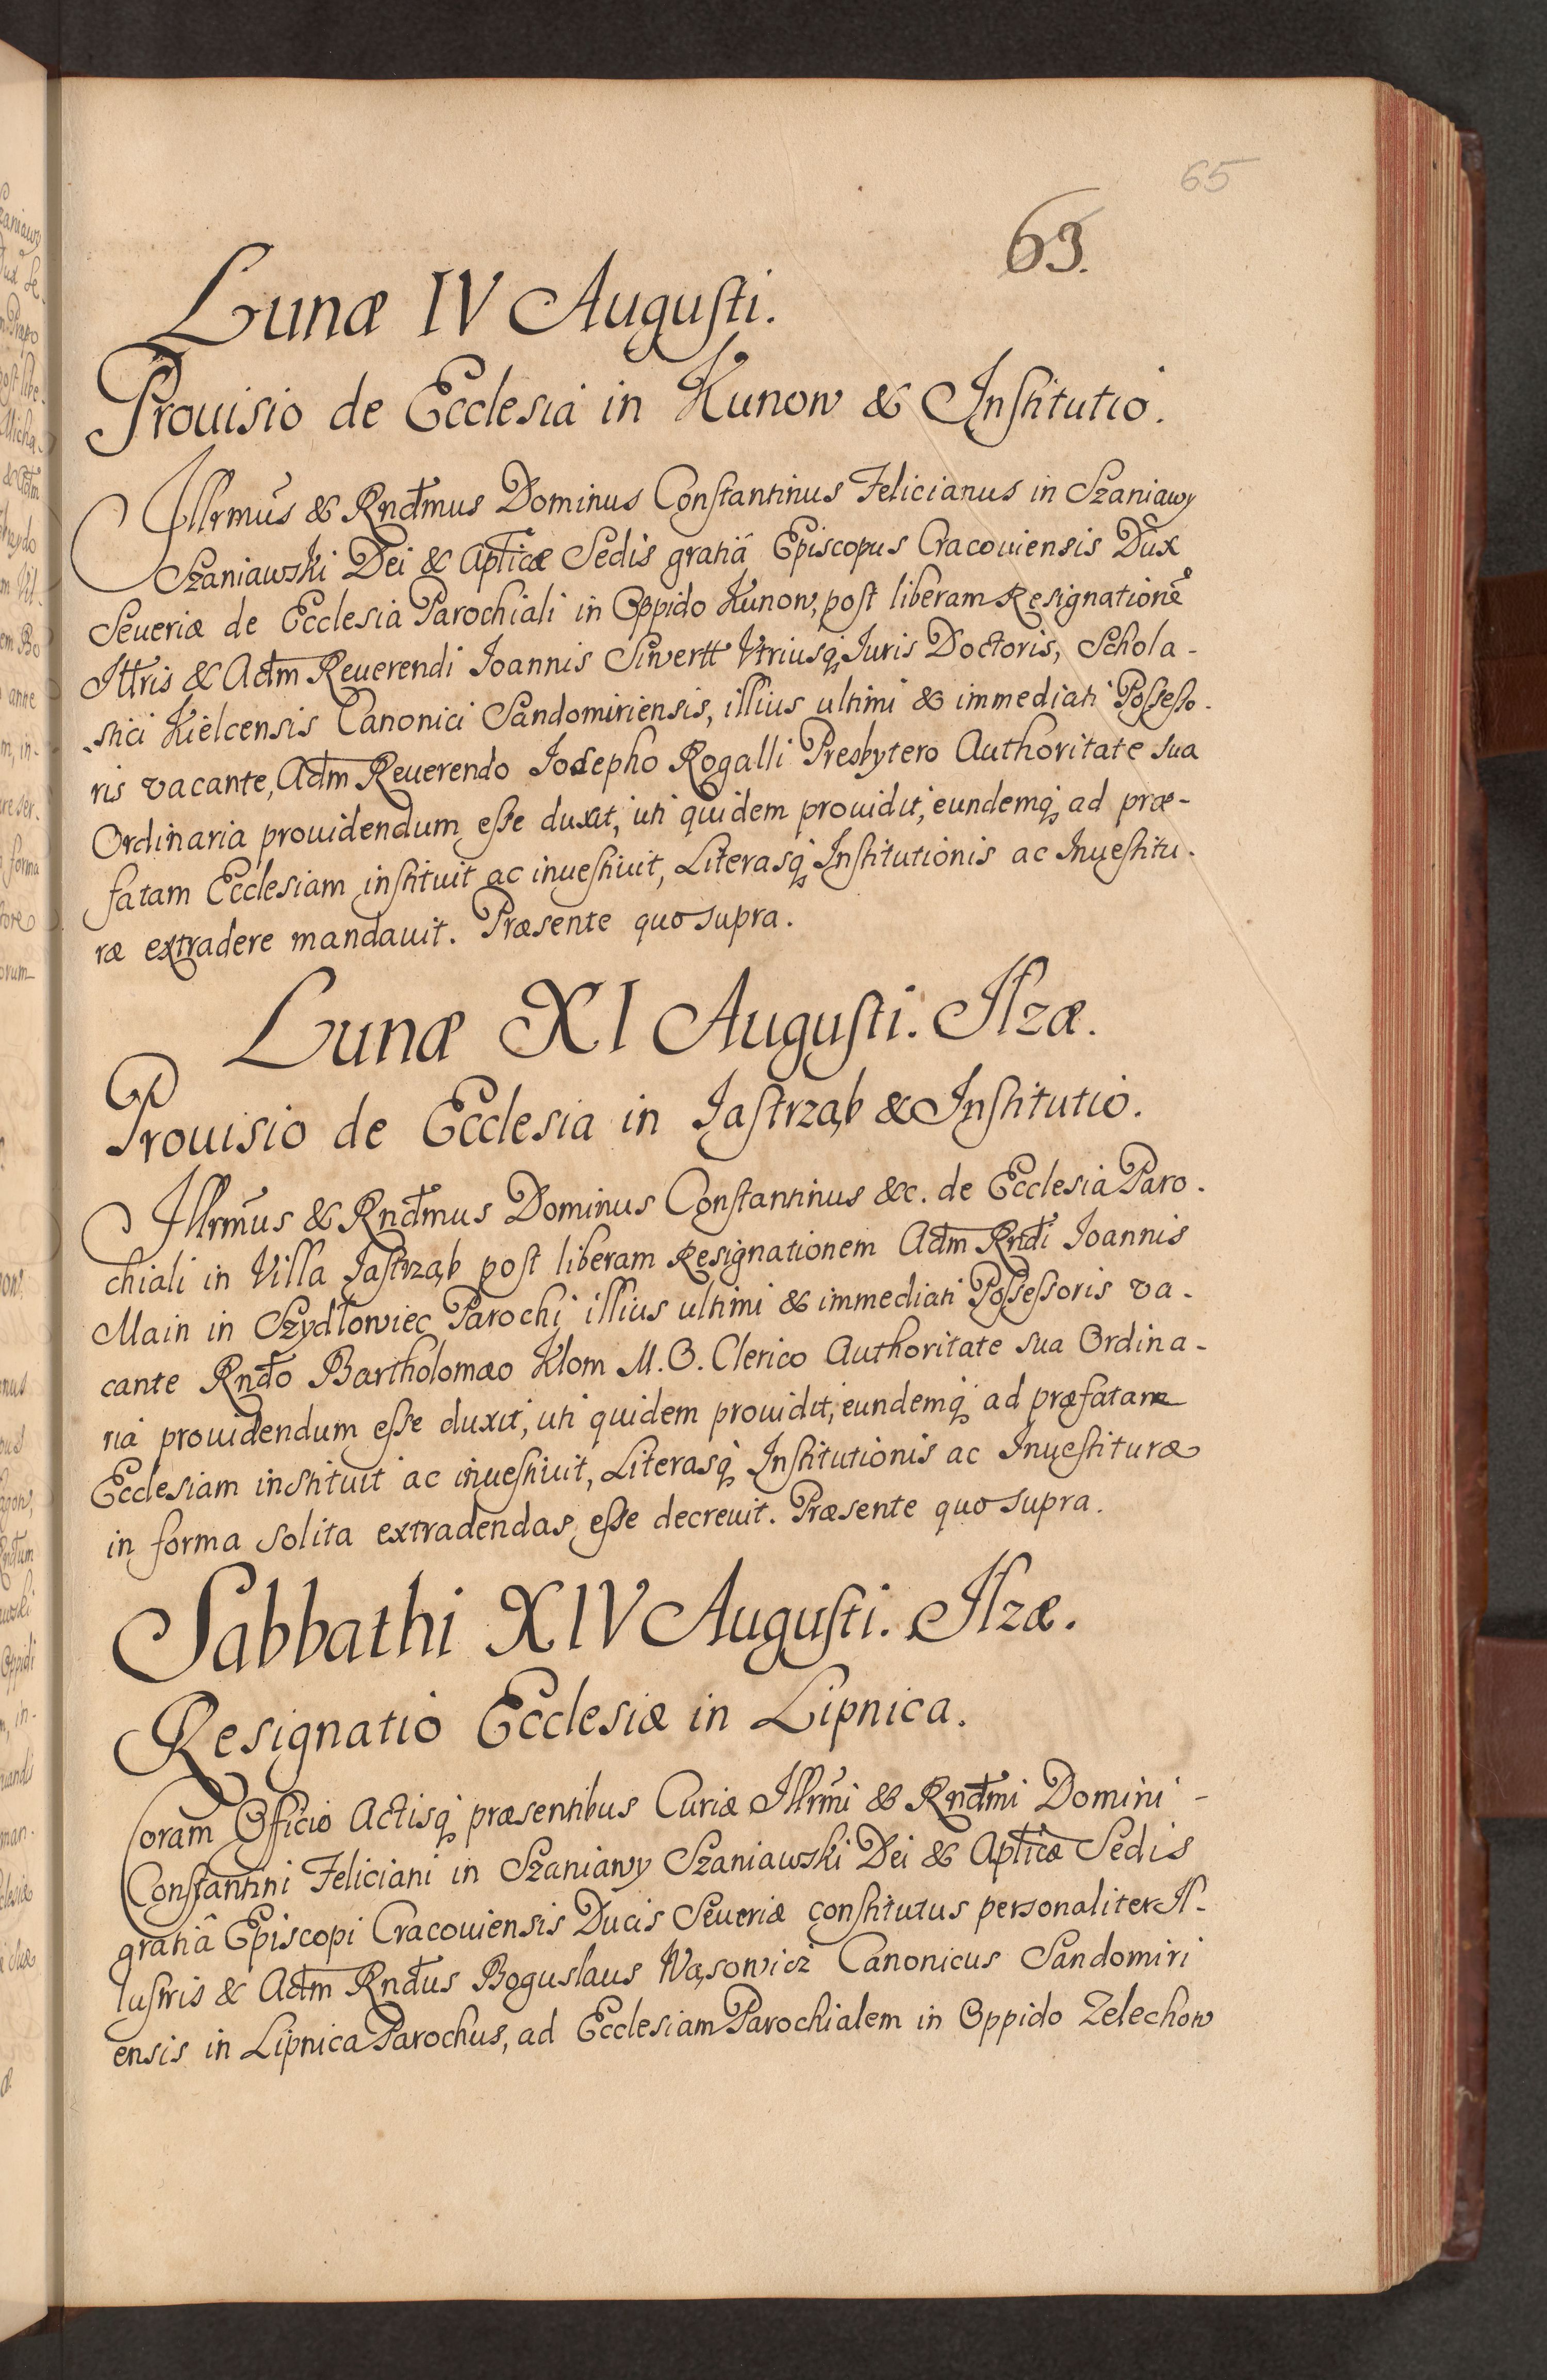 65
63.
Lunæ IV Augusti.
Prouisio de Ecclesia in Kunow & Institutio.
Illrmus & Rndmus Dominus Constantinus Felicianus in Szaniawy
Szaniawski Dei & Aplicæ Sedis gratiâ Episcopus Cracouiensis Dux
Seueriæ de Ecclesia Parochiali in Oppido Kunow, post liberam Resignationē
Illris & Adm Reuerendi Ioannis Siwertt Vtriusq Iuris Doctoris, Schola-
stici Kielcensis Canonici Sandomiriensis, illius ultimi & immediati Possesso-
ris vacante, Adm Reuerendo Iosepho Rogalli Presbytero Authoritate sua
Ordinaria prouidendum esse duxit, uti quidem prouidit, eundemq ad præ-
fatam Ecclesiam instituit ac inuestiuit, Literasq Institutionis ac Inuestitu-
ræ extradere mandauit. Præsente quo supra.
Lunæ XI Augusti. Ilzæ.
Prouisio de Ecclesia in Iastrząb & Institutio.
Illrmus & Rndmus Dominus Constantinus &c. de Ecclesia Paro-
chiali in Villa Iastrząb post liberam Resignationem Adm Rndi Ioannis
Main in Szydłowiec Parochi illius ultimi & immediati Possessoris va-
cante Rndo Bartholomæo Klom M. O. Clerico Authoritate sua Ordina-
ria prouidendum esse duxit, uti quidem prouidit, eundemq ad præfatam
Ecclesiam instituit ac inuestiuit, Literasq Institutionis ac Inuestituræ
in forma solita extradendas esse decreuit. Præsente quo supra.
Sabbathi XIV Augusti. Ilzæ.
Resignatio Ecclesiæ in Lipnica.
Coram Officio Actisq præsentibus Curiæ Illrmi & Rndmi Domini -
Constantini Feliciani in Szaniawy Szaniawski Dei & Aplicæ Sedis
gratiâ Episcopi Cracouiensis Ducis Seueriæ constitutus personaliter Il-
lustris & Adm Rndus Boguslaus Wąsowicz Canonicus Sandomiri
ensis in Lipnica Parochus, ad Ecclesiam Parochialem in Oppido Zelechow